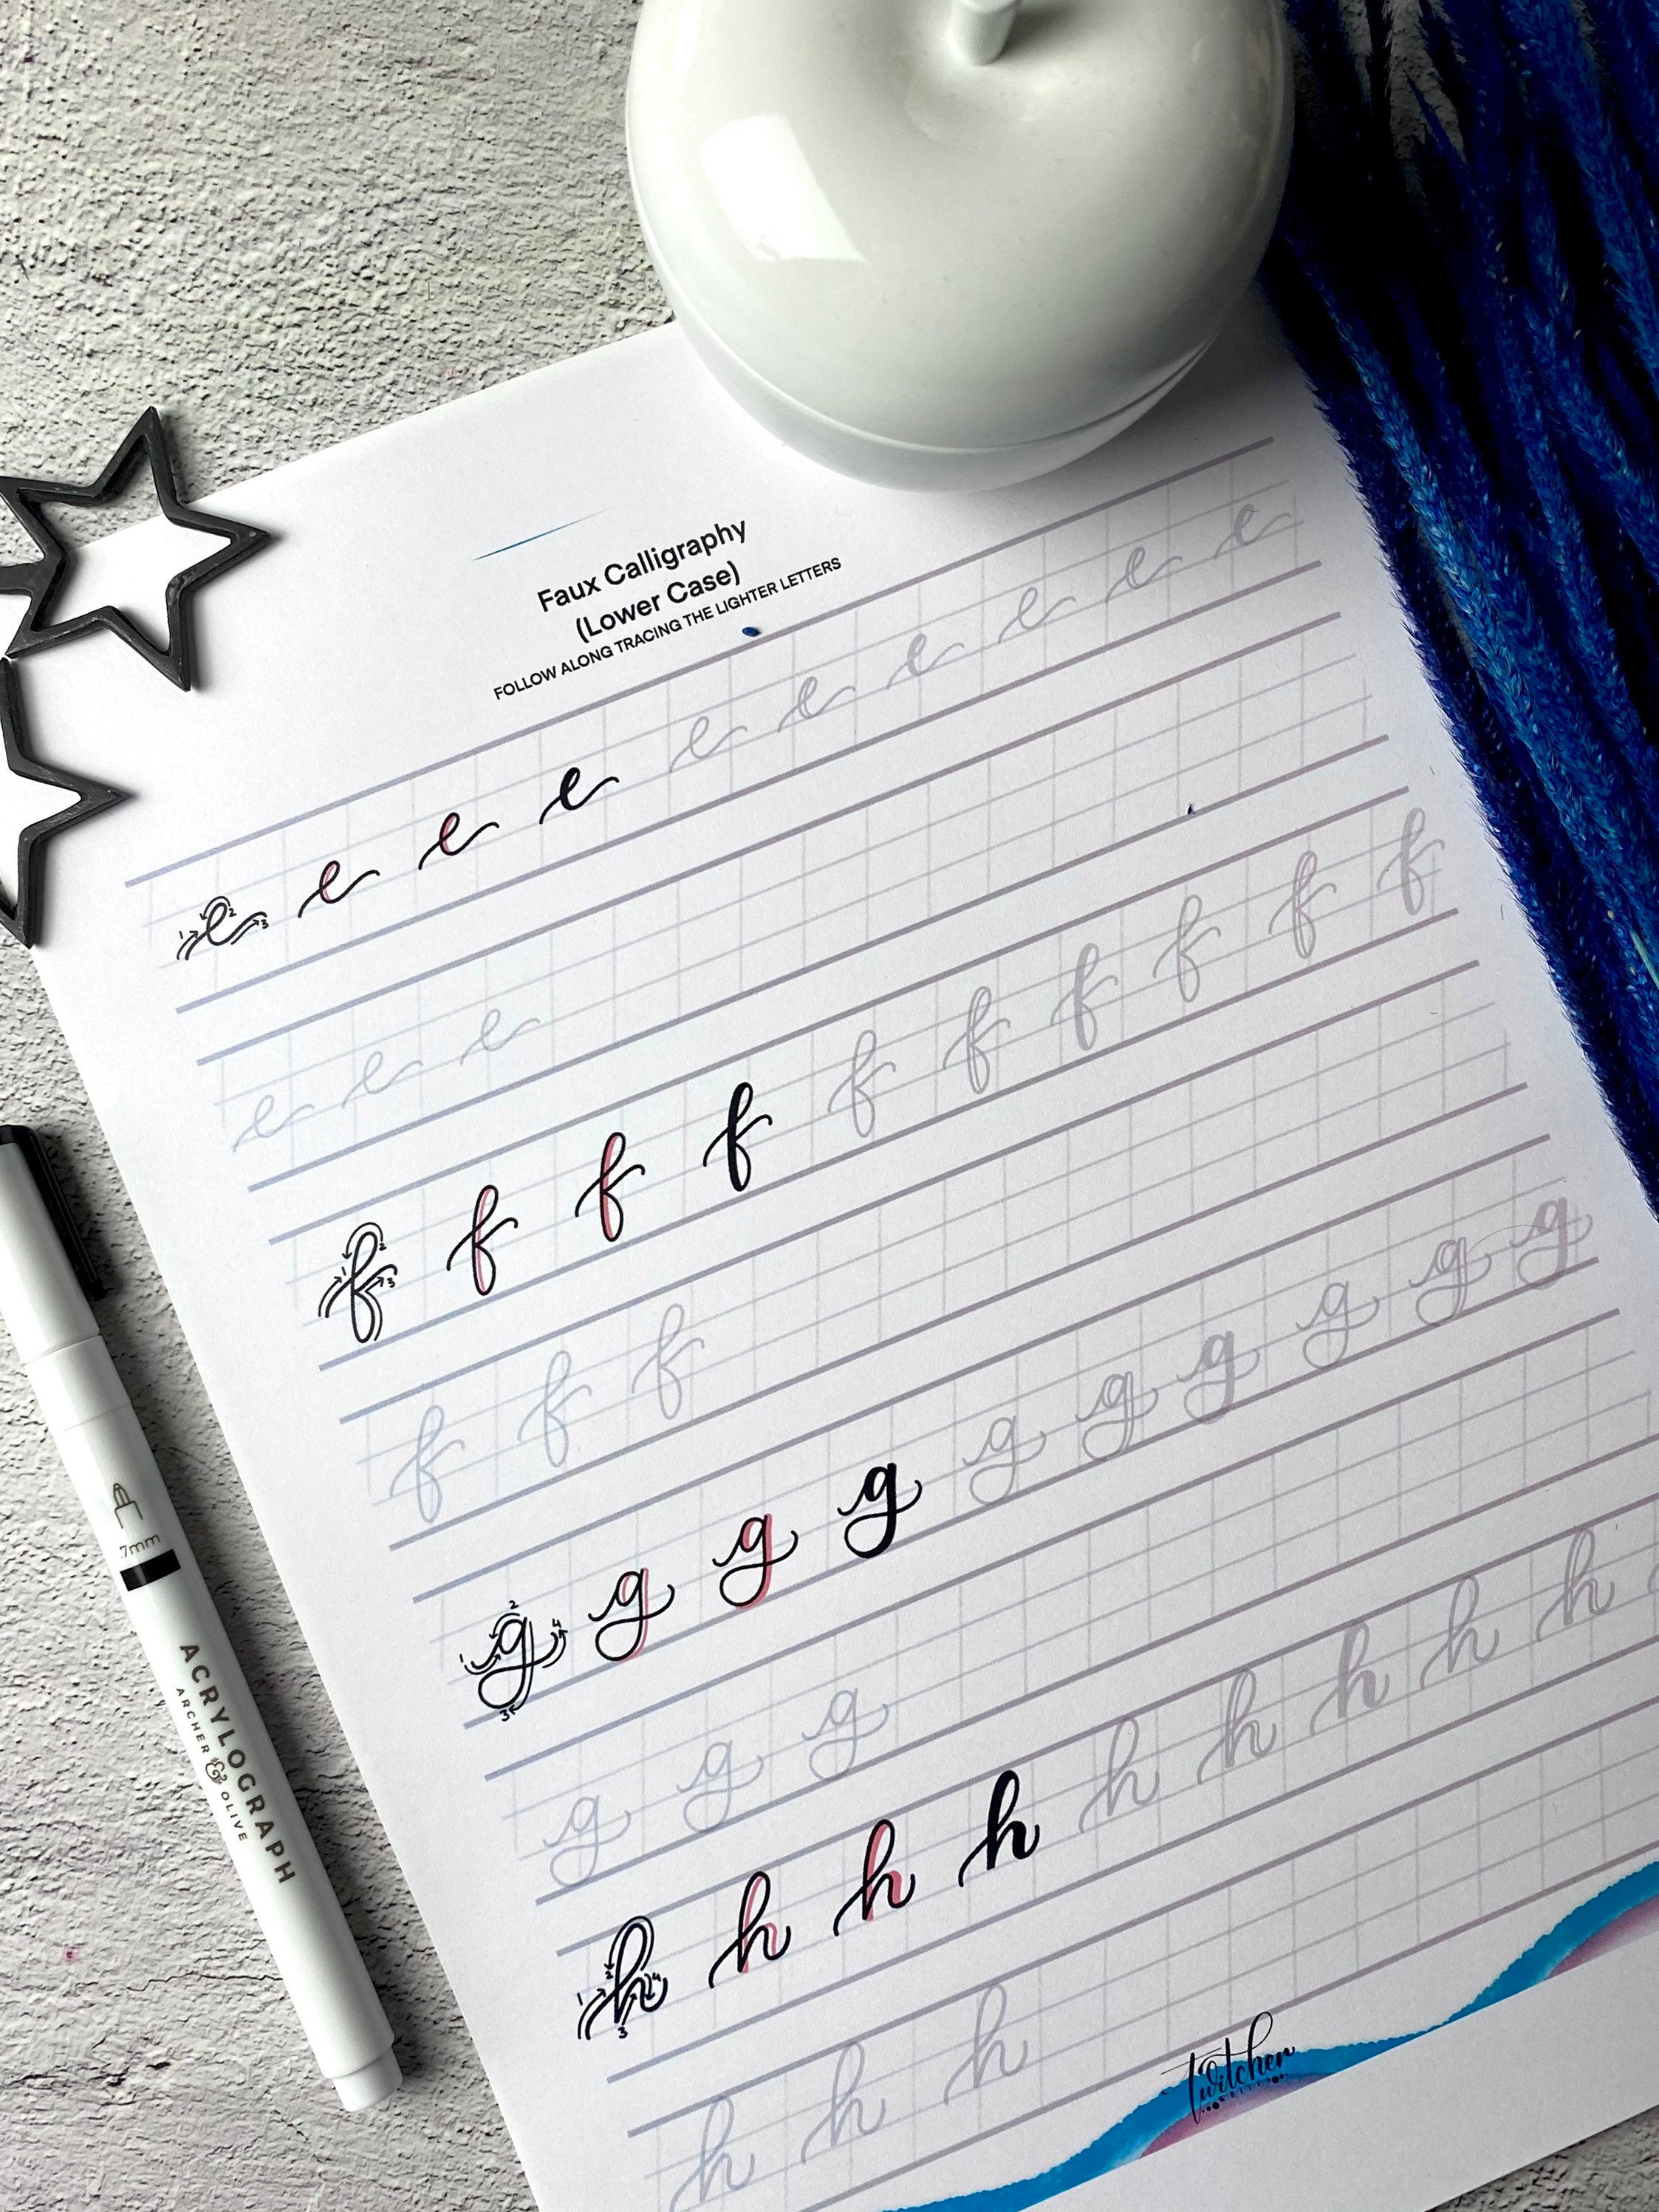 Faux Calligraphy
(Lower Case)
FOLLOW ALONG TRACING THE LIGHTER LETTERS
1 2 3
e e e e e e e e e e
e e e
1 2 3
f f f f f f f f f f
f f f
1 2 3 4
g g g g g g g g g g
g g g
1 2 3 4
h h h h h h h h h
h h h
twitcher
.7mm
ACRYLOGRAPH
ARCHER & OLIVE